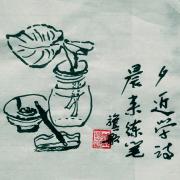 夕近学诗
晨来练笔